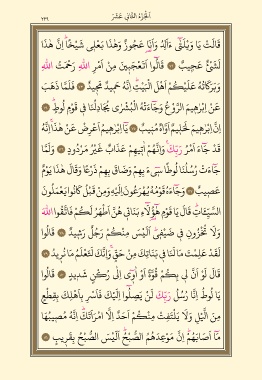 الجزء الثاني عشر
٢٢٩
قَالَتْ يَا وَيْلَتٰٓى ءَاَلِدُ وَاَنَا۬ عَجُوزٌ وَهٰذَا بَعْلٖى شَيْخًاؕ اِنَّ هٰذَا
لَشَىْءٌ عَجٖيبٌ قَالُٓوا اَتَعْجَبٖينَ مِنْ اَمْرِ اللّٰهِ رَحْمَتُ اللّٰهِ
وَبَرَكَاتُهُ عَلَيْكُمْ اَهْلَ الْبَيْتِؕ اِنَّهُ حَمٖيدٌ مَجٖيدٌ فَلَمَّا ذَهَبَ
عَنْ اِبْرٰهٖيمَ الرَّوْعُ وَجَٓاءَتْهُ الْبُشْرٰى يُجَادِلُنَا فٖى قَوْمِ لُوطٍؕ
اِنَّ اِبْرٰهٖيمَ لَحَلٖيمٌ اَوَّاهٌ مُنٖيبٌ يَٓا اِبْرٰهٖيمُ اَعْرِضْ عَنْ هٰذَاۚ اِنَّهُ
قَدْ جَٓاءَ اَمْرُ رَبِّكَۚ وَاِنَّهُمْ اٰتٖيهِمْ عَذَابٌ غَيْرُ مَرْدُودٍ وَلَمَّا
جَٓاءَتْ رُسُلُنَا لُوطًا سٖٓىءَ بِهِمْ وَضَاقَ بِهِمْ ذَرْعًا وَقَالَ هٰذَا يَوْمٌ
عَصٖيبٌ وَجَٓاءَهُ قَوْمُهُ يُهْرَعُونَ اِلَيْهِؕ وَمِنْ قَبْلُ كَانُوا يَعْمَلُونَ
السَّيِّـَٔاتِؕ قَالَ يَا قَوْمِ هٰٓؤُ۬لَٓاءِ بَنَاتٖى هُنَّ اَطْهَرُ لَكُمْ فَاتَّقُوا اللّٰهَ
وَلَا تُخْزُونِ فٖى ضَيْفٖىؕ اَلَيْسَ مِنْكُمْ رَجُلٌ رَشٖيدٌ قَالُوا
لَقَدْ عَلِمْتَ مَا لَنَا فٖى بَنَاتِكَ مِنْ حَقٍّۚ وَاِنَّكَ لَتَعْلَمُ مَا نُرٖيدُ
قَالَ لَوْ اَنَّ لٖى بِكُمْ قُوَّةً اَوْ اٰوٖٓى اِلٰى رُكْنٍ شَدٖيدٍ قَالُوا
يَا لُوطُ اِنَّا رُسُلُ رَبِّكَ لَنْ يَصِلُٓوا اِلَيْكَ فَاَسْرِ بِاَهْلِكَ بِقِطْعٍ
مِنَ الَّيْلِ وَلَا يَلْتَفِتْ مِنْكُمْ اَحَدٌ اِلَّا امْرَاَتَكَؕ اِنَّهُ مُصٖيبُهَا
مَٓا اَصَابَهُمْؕ اِنَّ مَوْعِدَهُمُ الصُّبْحُؕ اَلَيْسَ الصُّبْحُ بِقَرٖيبٍ